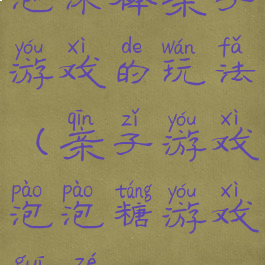 泡沫棒亲子
yóu xì de wán fǎ
游戏的玩法
qīn zǐ yóu xì
（亲子游戏
pào pào táng yóu xì
泡泡糖游戏
guī zé